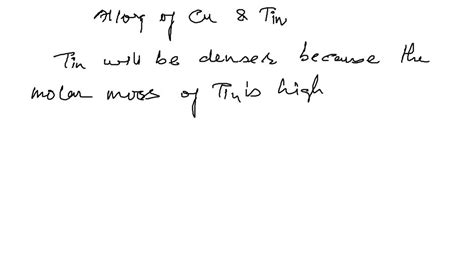 Alloy of Cu & Tin
Tin will be denser because the
molar mass of Tin is high